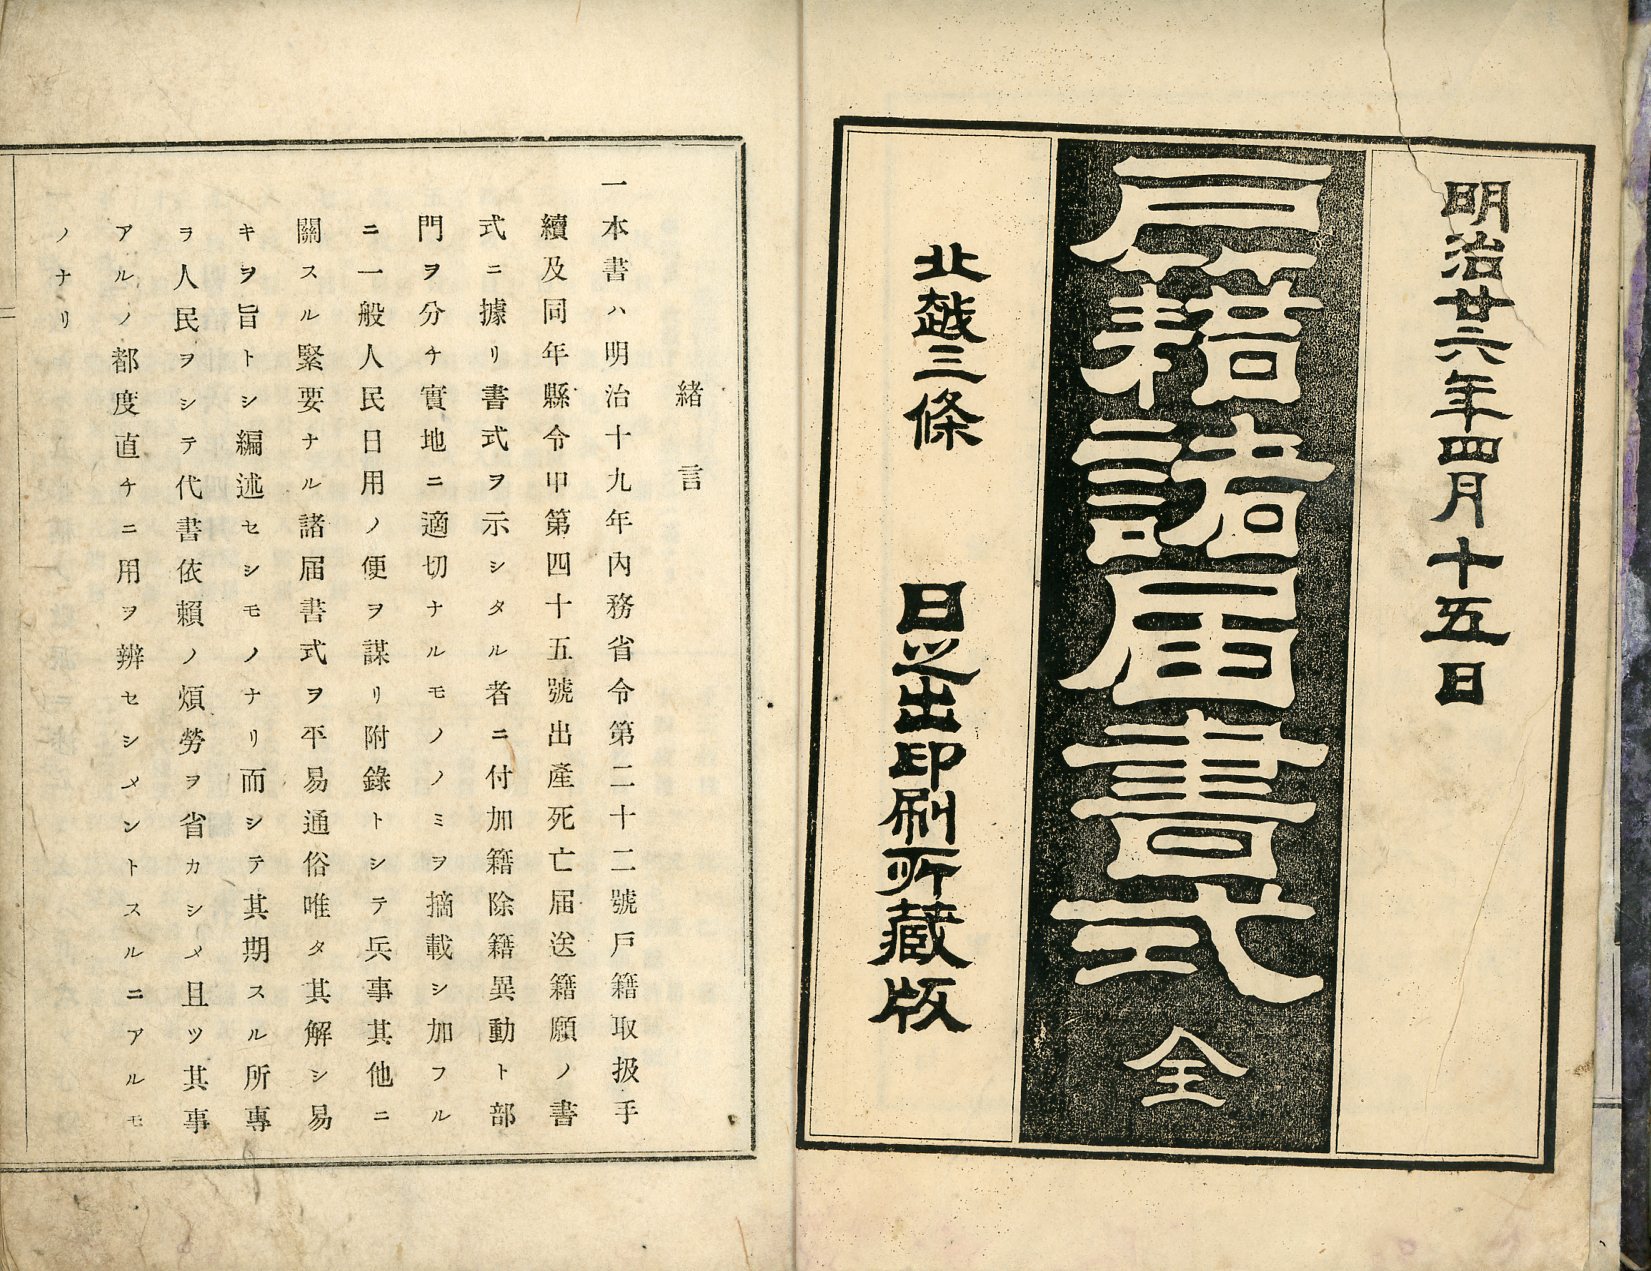 明治廿六年四月十五日
戸籍諸届書式 全
北越三條 日之出印刷所藏版
緒言
一本書ハ明治十九年內務省令第二十二號戶籍取扱手
續及同年縣令甲第四十五號出產死亡届送籍願ノ書
式ニ據リ書式ヲ示シタル者ニ付加籍除籍異動ト部
門ヲ分チ實地ニ適切ナルモノノミヲ摘載シ加フル
ニ一般人民日用ノ便ヲ謀リ附錄トシテ兵事其他ニ
關スル緊要ナル諸届書式ヲ平易通俗唯タ其解シ易
キヲ旨トシ編述セシモノナリ而シテ其期スル所專
ヲ人民ヲシテ代書依賴ノ煩勞ヲ省カシメ且ツ其事
アルノ都度直チニ用ヲ辨セシメントスルニアルモ
ノナリ
二